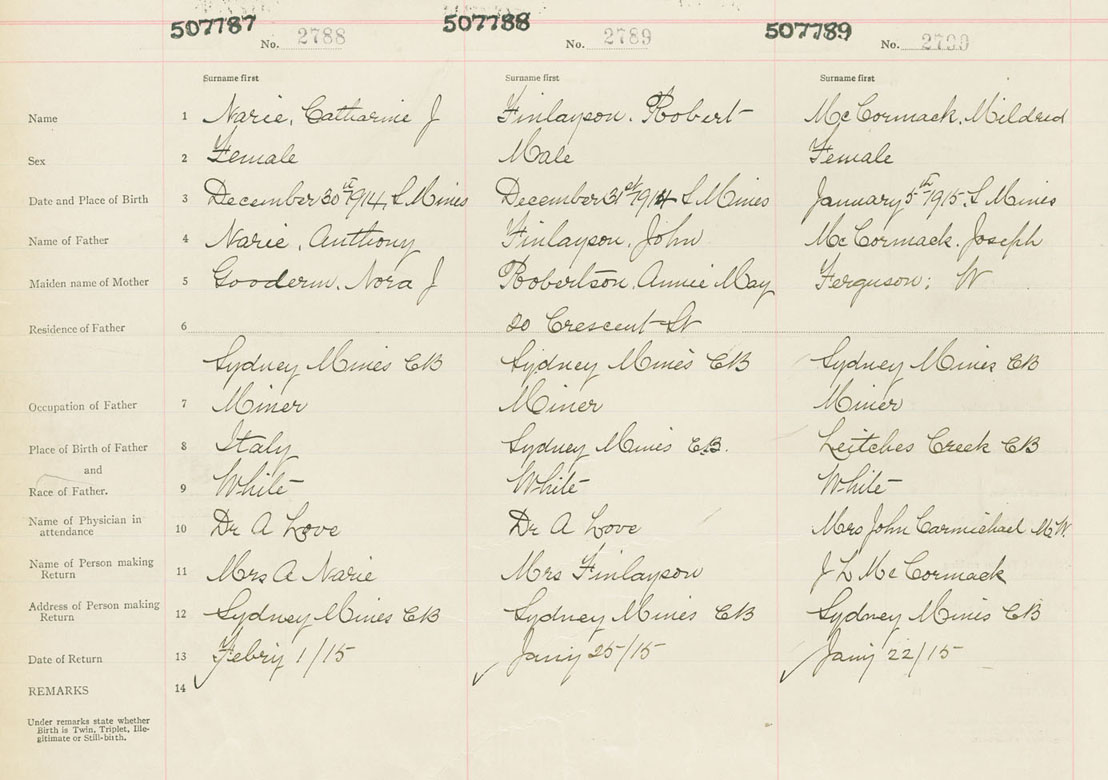 507787 No. 2788 507788 No. 2789 507789 No. 2790
Surname first Surname first Surname first
Name 1 Narie, Catharine J Finlayson, Robert McCormack, Mildred
Sex 2 Female Male Female
Date and Place of Birth 3 December 30th 1914, S Mines December 31st 1914 S Mines January 5th 1915, S Mines
Name of Father 4 Narie, Anthony Finlayson, John McCormack, Joseph
Maiden name of Mother 5 Nora J Robertson, Annie May Ferguson; W
Residence of Father 6 20 Crescent St
Sydney Mines CB Sydney Mines CB Sydney Mines CB
Occupation of Father 7 Miner Miner Miner
Place of Birth of Father 8 Italy Sydney Mines C.B. Leitches Creek CB
and
Race of Father. 9 White White White
Name of Physician in
attendance 10 Dr A Love Dr A Love Mrs John Carmichael M.W.
Name of Person making
Return 11 Mrs A Narie Mrs Finlayson J L McCormack
Address of Person making
Return 12 Sydney Mines CB Sydney Mines CB Sydney Mines CB
Date of Return 13 Febriy 1/15 Janiy 25/15 Janiy 22/15
REMARKS 14
Under remarks state whether
Birth is Twin, Triplet, Ille-
gitimate or Still-birth.